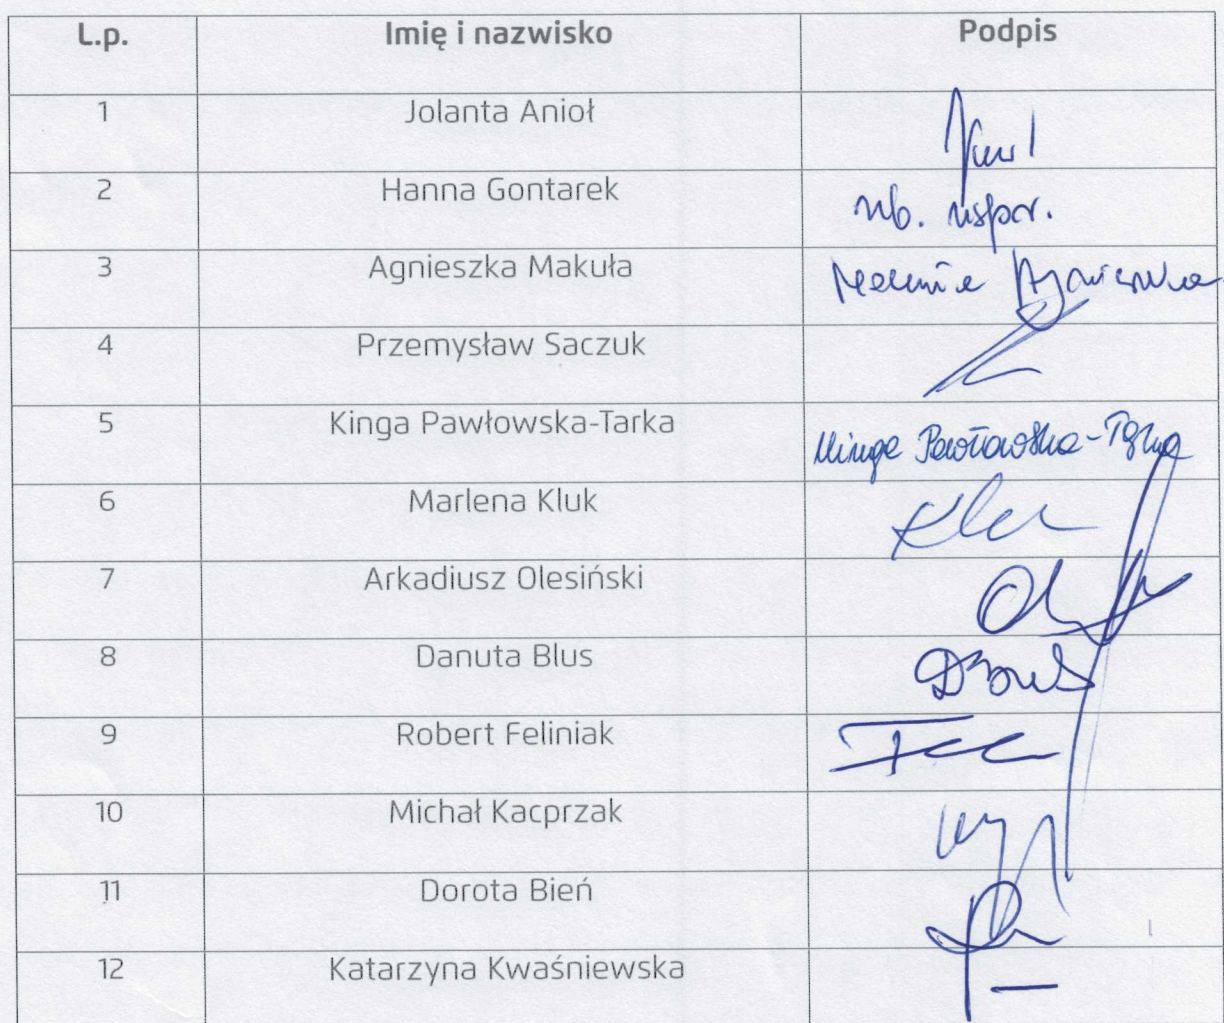 L.p. Imię i nazwisko Podpis
1 Jolanta Anioł
2 Hanna Gontarek
3 Agnieszka Makuła
4 Przemysław Saczuk
5 Kinga Pawłowska-Tarka Kinga Pawłowska-Tarka
6 Marlena Kluk
7 Arkadiusz Olesiński
8 Danuta Blus
9 Robert Feliniak
10 Michał Kacprzak
11 Dorota Bień
12 Katarzyna Kwaśniewska —